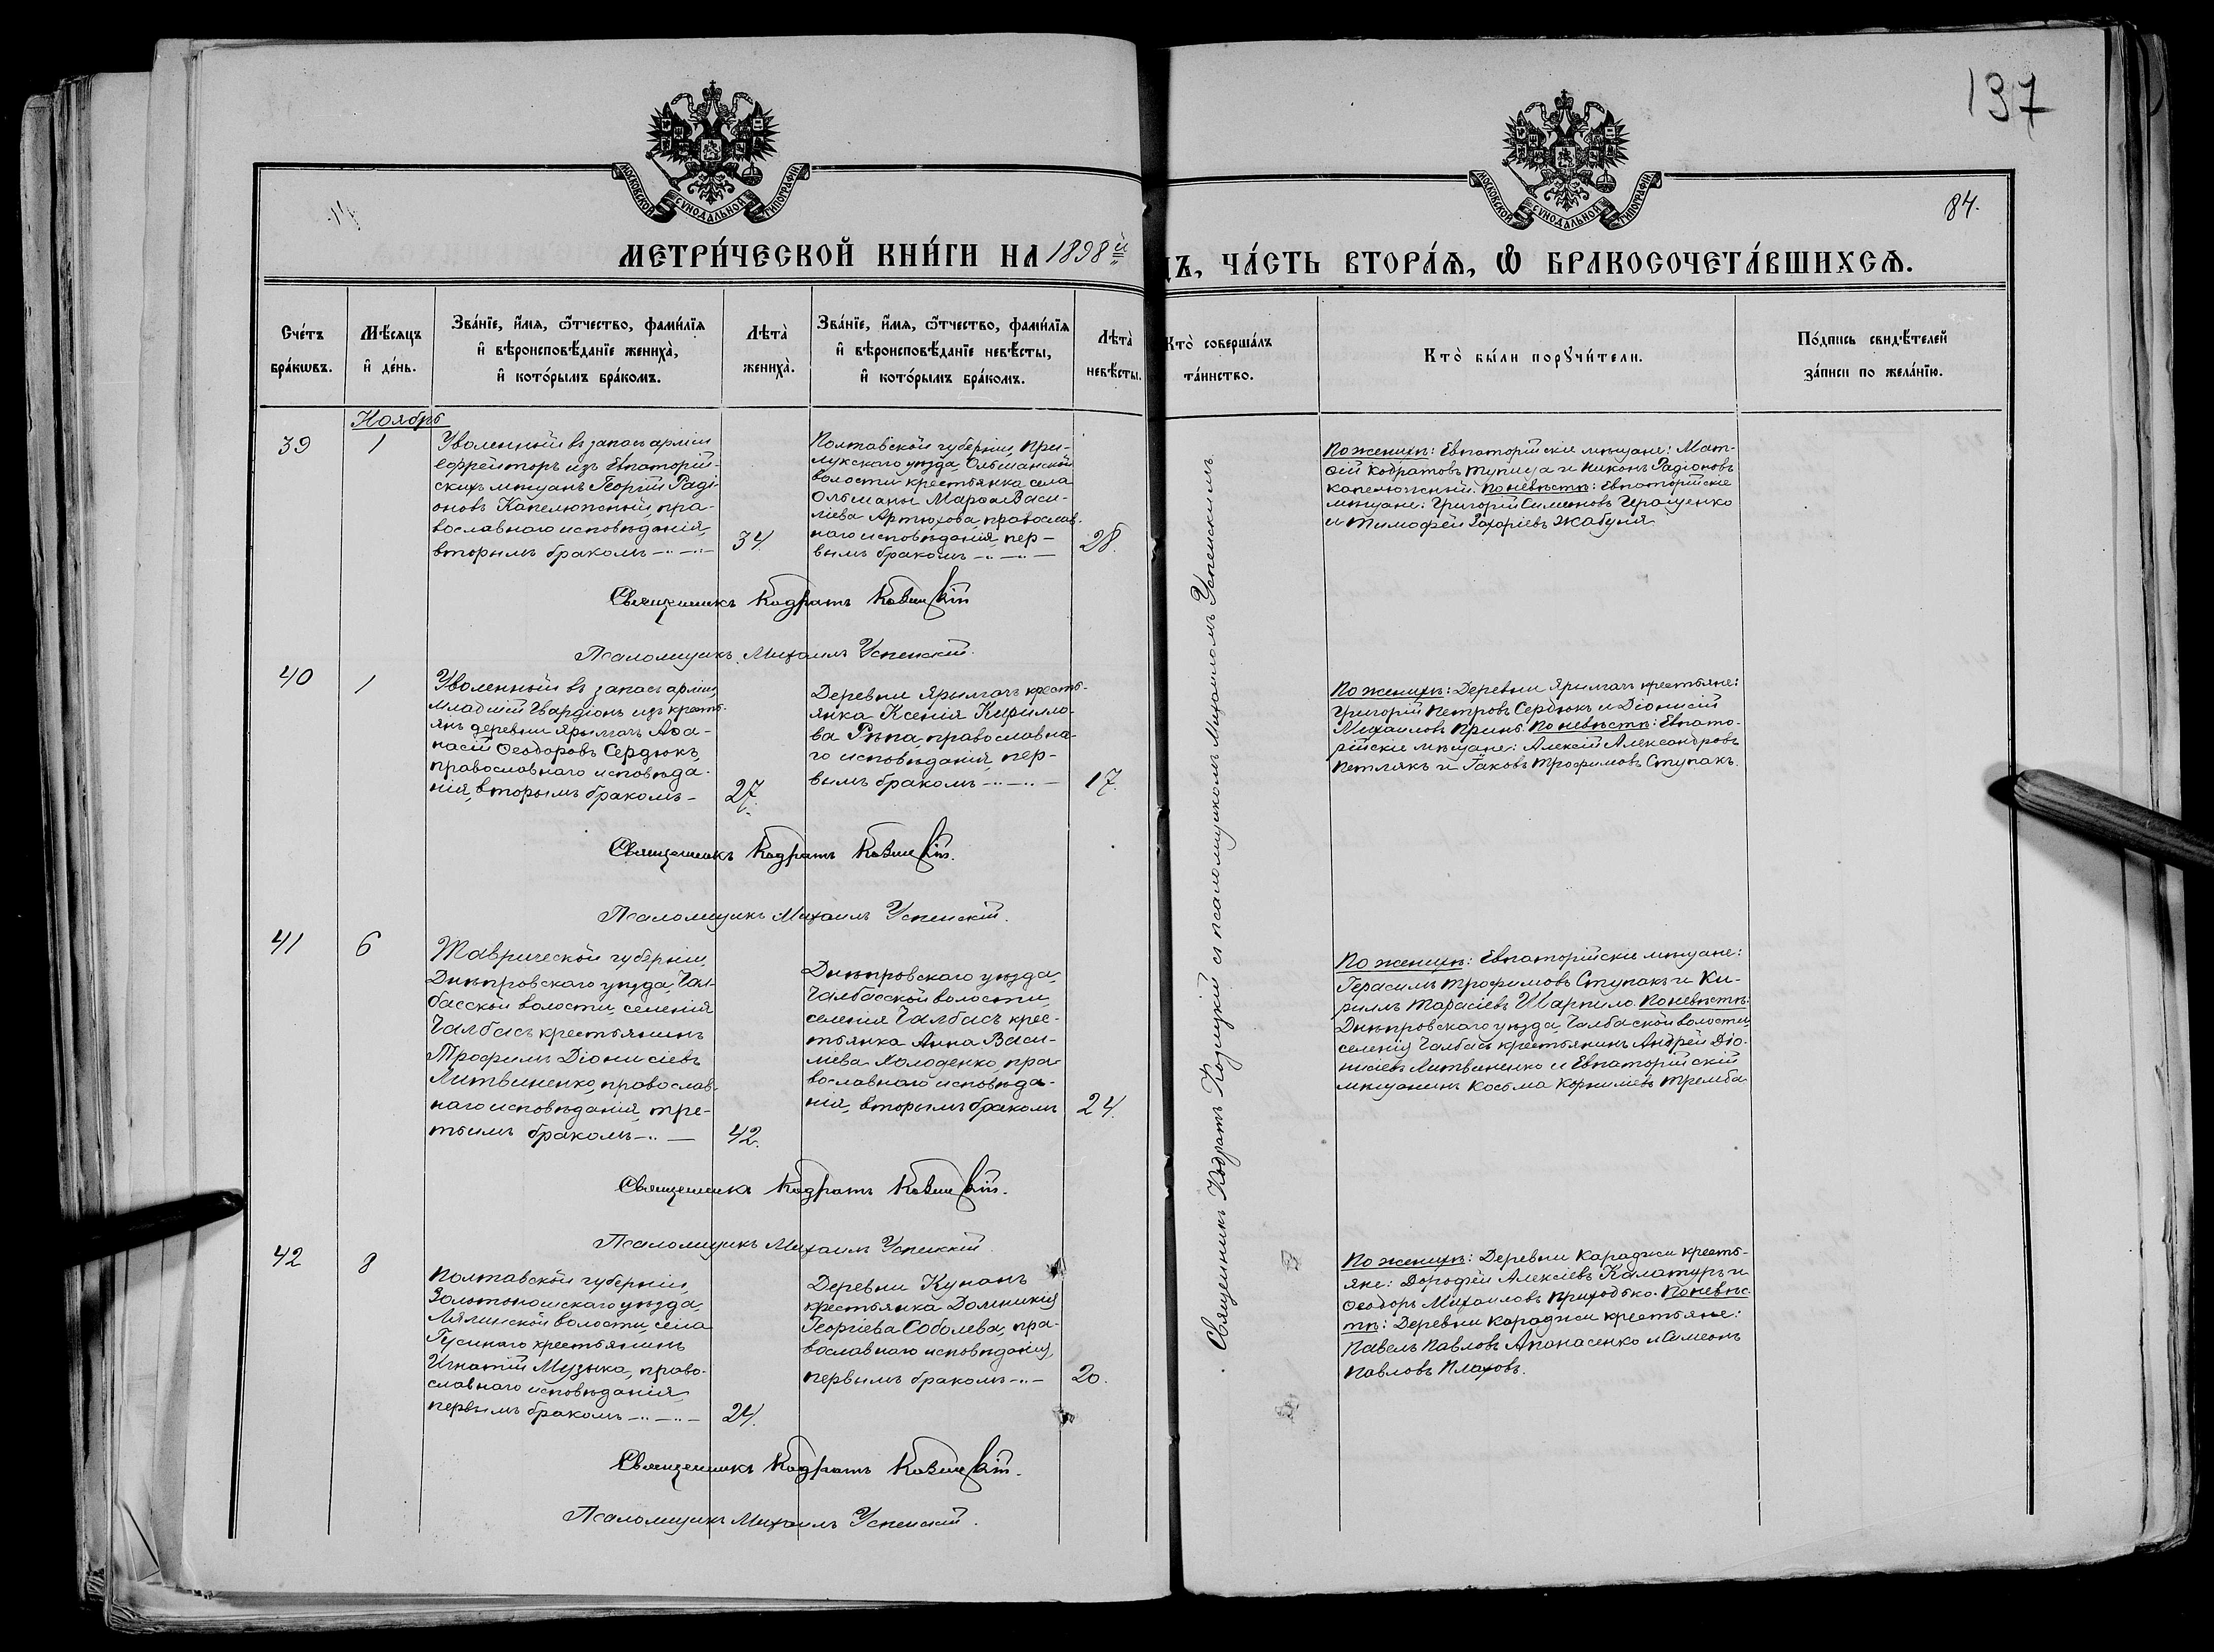 137
84.
МОСКОВСКОЙ СѴНОДАЛЬНОЙ ТИПОГРАФІИ
МОСКОВСКОЙ СѴНОДАЛЬНОЙ ТИПОГРАФІИ
МЕТРИ́ЧЕСКОЙ КНИ́ГИ НА 1898й
ДЪ, ЧА́СТЬ ВТОРА́Ѧ, Ѡ БРАКОСОЧЕТА́ВШИХСѦ.
Сче́тъ
бра́кѡвъ.
Мѣ́сяцъ
и҆ де́нь.
Зва́нїе, и҆́мя, ѻ҆́тчество, фами́лїя
и҆ вѣроисповѣ́данїе жениха̀,
и҆ кото́рымъ бра́комъ.
Лѣта̀
жениха̀.
Зва́нїе, и҆́мя, ѻ҆́тчество, фами́лїя
и҆ вѣроисповѣ́данїе невѣ́сты,
и҆ кото́рымъ бра́комъ.
Лѣта̀
невѣ́сты.
Кто̀ соверша́лъ
та́инство.
Кто̀ бы́ли порꙋчи́тели.
По́дпись свидѣ́телей
за́писи по жела́нїю.
Ноябрь
39
1
Уволенный въ запасъ арміи
ефрейторъ изъ Евпаторій-
скихъ мѣщанъ Георгій Раді-
оновъ Капелюжный, пра-
вославнаго исповѣданія,
вторымъ бракомъ
34.
Полтавской губерніи, При-
лукскаго уѣзда, Ольшанской
волости крестьянка села
Ольшаны Марѳа Васи-
ліева Артюхова, православ-
наго исповѣданія, пер-
вымъ бракомъ
28.
По женихѣ: Евпаторійскіе мѣщане: Мат-
ѳій Кодратовъ Тупица и Никонъ Радіоновъ
Капелюжный. По невѣстѣ: Евпаторійскіе
мѣщане: Григорій Симеоновъ Геращенко
и Тимофей Захаріевъ Жабуня
Священникъ Кодратъ
Псаломщикъ Михаилъ Успенскій.
40
1
Уволенный въ запасъ арміи
младшій Гвардіонъ изъ кресть-
янъ деревни Ярылгачъ Аѳа-
насій Ѳеодоровъ Сердюкъ,
православнаго исповѣда-
нія, вторымъ бракомъ
27.
Деревни Ярылгачъ кресть-
янка Ксенія Кирилло-
ва Рѣпа, православна-
го исповѣданія, пер-
вымъ бракомъ
17.
По женихѣ: Деревни Ярылгачъ крестьяне:
Григорій Петровъ Сердюкъ и Діонисій
Михаиловъ Принь. По невѣстѣ: Евпато-
рійскіе мѣщане: Алексій Александровъ
Петлякъ и Іаковъ Трофимовъ Ступакъ.
Священникъ Кодратъ
Псаломщикъ Михаилъ Успенскій.
41
6
Таврической губерніи,
Днѣпровскаго уѣзда, Чал-
басской волости, селенія
Чалбасъ крестьянинъ
Трофимъ Діонисіевъ
Литвиненко, православ-
наго исповѣданія, тре-
тьимъ бракомъ
42.
Днѣпровскаго уѣзда,
Чалбасской волости,
селенія Чалбасъ крес-
тьянка Анна Васи-
лиева Холоденко, пра-
вославнаго исповѣда-
нія, вторымъ бракомъ
24.
По женихѣ: Евпаторійскіе мѣщане:
Герасимъ Трофимовъ Ступакъ и Ки-
риллъ Тарасіевъ Шарпило. По невѣстѣ:
Днѣпровскаго уѣзда, Чалбаской волости,
селенія Чалбасъ крестьянинъ Андрей Діо-
нисіевъ Литвиненко и Евпаторійскій
мѣщанинъ Косьма Корниліевъ Тремба
Священникъ Кодратъ
Псаломщикъ Михаилъ Успенскій
42
8
Полтавской губерніи,
Золотоношскаго уѣзда,
Лялинской волости, села
Гусинаго крестьянинъ
Игнатій Музыка, право-
славнаго исповѣданія,
первымъ бракомъ
24.
Деревни Кунанъ
крестьянка Домникія
Георгіева Соболева, пра-
вославнаго исповѣданія,
первымъ бракомъ
20.
По женихѣ: Деревни Караджи кресть-
яне: Дорофей Алексіевъ Калатуръ и
Ѳеодоръ Михаиловъ Приходько. По невѣс-
тѣ: Деревни Караджи крестьяне:
Павелъ Павловъ Апанасенко и Симеонъ
Павловъ Плаховъ.
Священникъ Кодратъ
Псаломщикъ Михаилъ Успенскій.
Священникъ Кодратъ съ псаломщикомъ Михаиломъ Успенскимъ